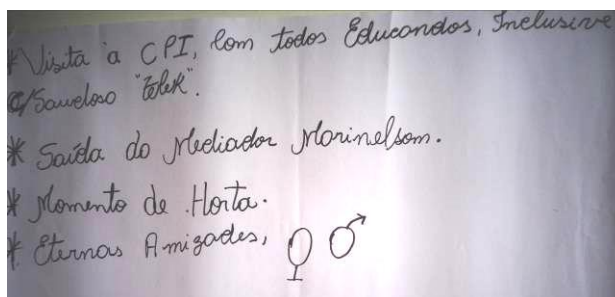 *Visita a CPI, Com todos Educandos, Inclusive
C/Saueloso "Telek".
* Saída do Mediador Marinelsom.
* Momento de Horta.
* Eternas Amizades, ♀ ♂